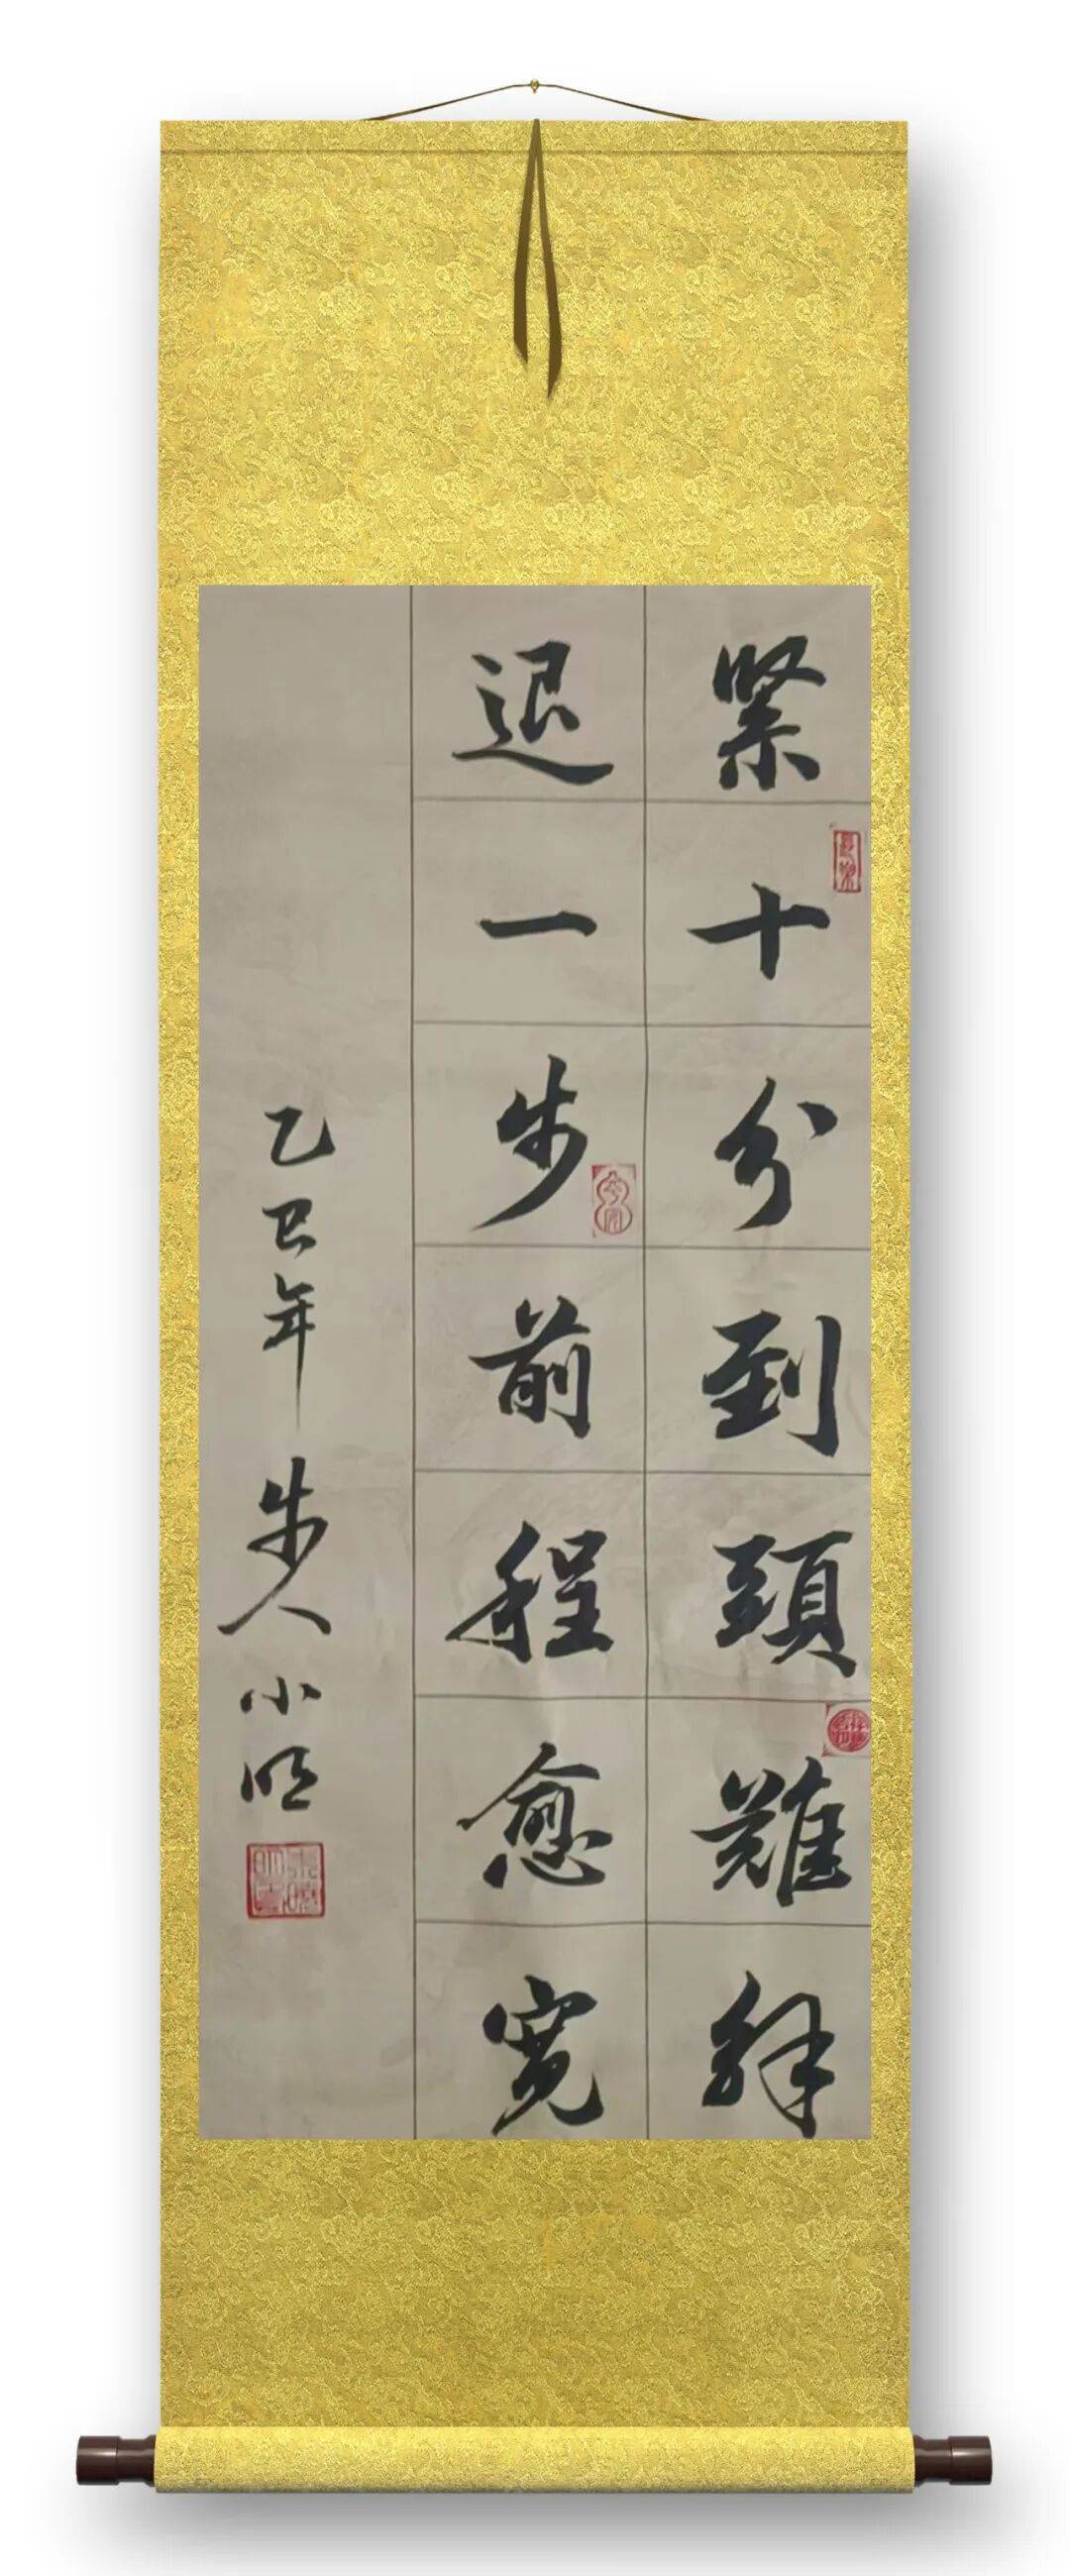 緊十分到頭難解
退一步前程愈寬
乙巳年步人小明